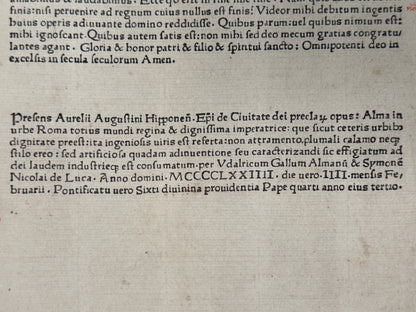 finis: nisi peruenire ad regnum cuius nullus est finis? Videor mihi debitum ingentis
huius operis adiuuante domino reddidisse. Quibus parum: uel quibus nimium est:
mihi ignoscant. Quibus autem satis est: non mihi sed deo mecum gratias congratu/
lantes agant. Gloria & honor patri & filio & spiritui sancto: Omnipotenti deo in
excelsis in secula seculorum Amen.
Presens Aurelii Augustini Hipponeñ. Ep̃i de Ciuitate dei preclaȝ opus: Alma in
urbe Roma totius mundi regina & dignissima imperatrice: que sicut ceteris urbibꝰ
dignitate preest: ita ingeniosis uiris est referta: non attramento, plumali calamo neqꝫ
stilo ereo: sed artificiosa quadam adinuentione seu caracterizandi sic effigiatum ad
dei laudem industrieqꝫ est consumatum per Vdalricum Gallum Almanũ & Symonẽ
Nicolai de Luca. Anno domini. MCCCCLXXIIII. die uero. IIII. mensis Fe,
bruarii. Pontificatu uero Sixti diuinina prouidentia Pape quarti anno eius tertio.